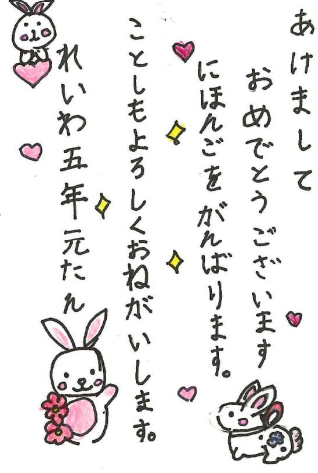 あけまして
おめでとうございます
にほんごを がんばります。
ことしもよろしくおねがいします。
れいわ五年元たん